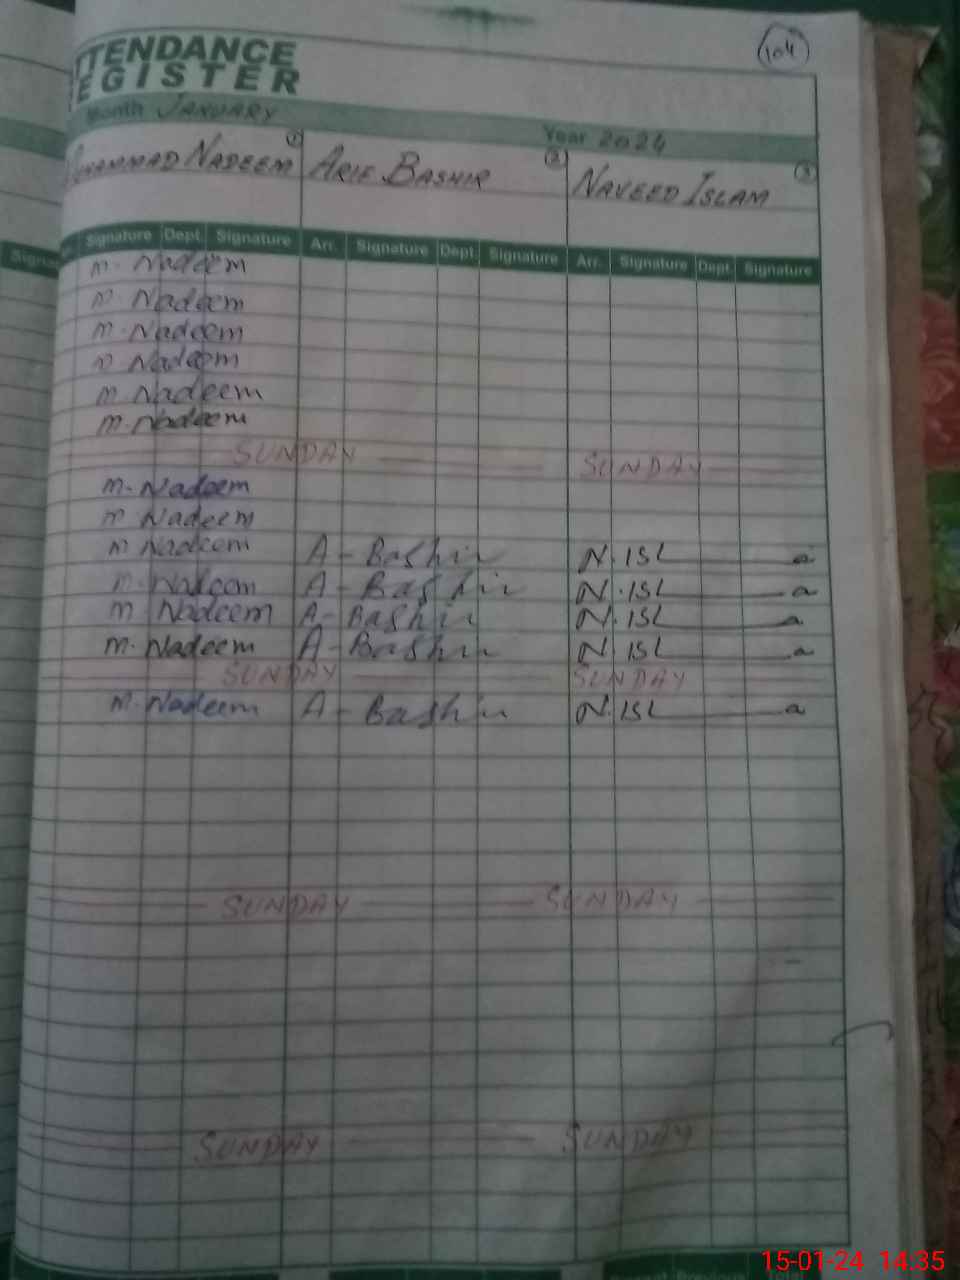 TTENDANCE
EGISTER
104
Month JANUARY Year 2024
MUHAMMAD NADEEM 1 ARIF BASHIR 2 NAVEED ISLAM 3
Signature Signature Dept. Signature Arr. Signature Dept. Signature Arr. Signature Dept. Signature
m. Nadeem
m. Nadeem
m. Nadeem
m. Nadeem
m. Nadeem
m. Nadeem
SUNDAY SUNDAY
m. Nadeem
m Nadeem
m Nadeem A - Bashir N. ISL a
m. Nadeem A - Bashir N. ISL a
m Nadeem A - Bashir N. ISL a
m. Nadeem A - Bashir N. ISL a
SUNDAY SUNDAY
m. Nadeem A - Bashir N. ISL a
SUNDAY SUNDAY
SUNDAY SUNDAY
15-01-24 14:35